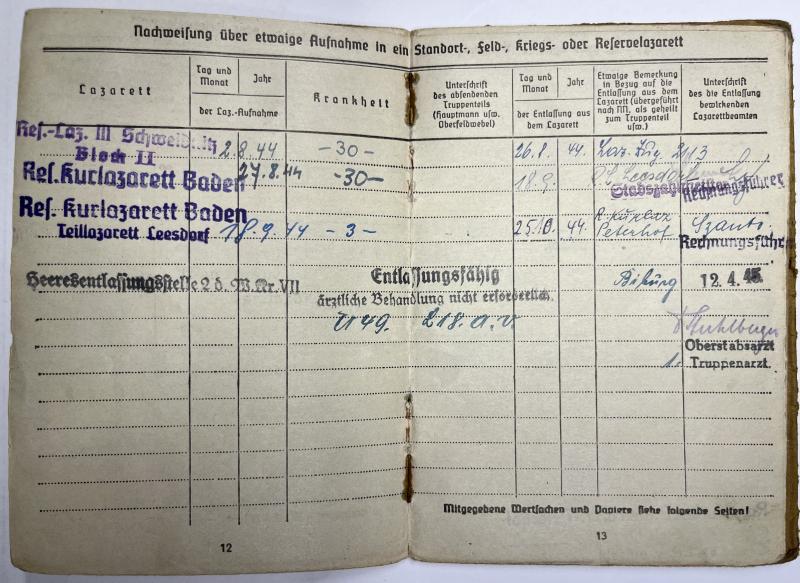 Nachweisung über etwaige Aufnahme in ein Standort-, Feld-, Kriegs- oder Reservelazarett
Lazarett
Tag und Monat
Jahr
der Laz.-Aufnahme
Krankheit
Unterschrift
des absendenden
Truppenteils
(Hauptmann usw.
Oberfeldwebel)
Tag und Monat
Jahr
der Entlassung aus
dem Lazarett
Etwaige Bemerkung
in Bezug auf die
Entlassung aus dem
Lazarett (übergeführt
nach NN, als geheilt
zum Truppenteil
usw.)
Unterschrift
des die Entlassung
bewirkenden
Lazarettbeamten
Res.-Laz. III Schweidnitz
Block II
2.8.44 -30- 26.8. 44. Laz. Zug. 3113
Res. Kurlazarett Baden 27.8.44 -30- 18.9. Leesdorf
Stabszahlmeister
Rechnungsführer
Res. Kurlazarett Baden
Teillazarett Leesdorf 18.9.44 -3- 25.10. 44. Peterhof Szanto
Rechnungsführer
Heeresentlassungsstelle 2 d. W. Kr. VII Entlassungsfähig Biburg 12.4.45
ärztliche Behandlung nicht erforderlich.
U49. 218. a.v.
Oberstabsarzt
Truppenarzt.
Mitgegebene Wertsachen und Papiere siehe folgende Seiten!
12
13